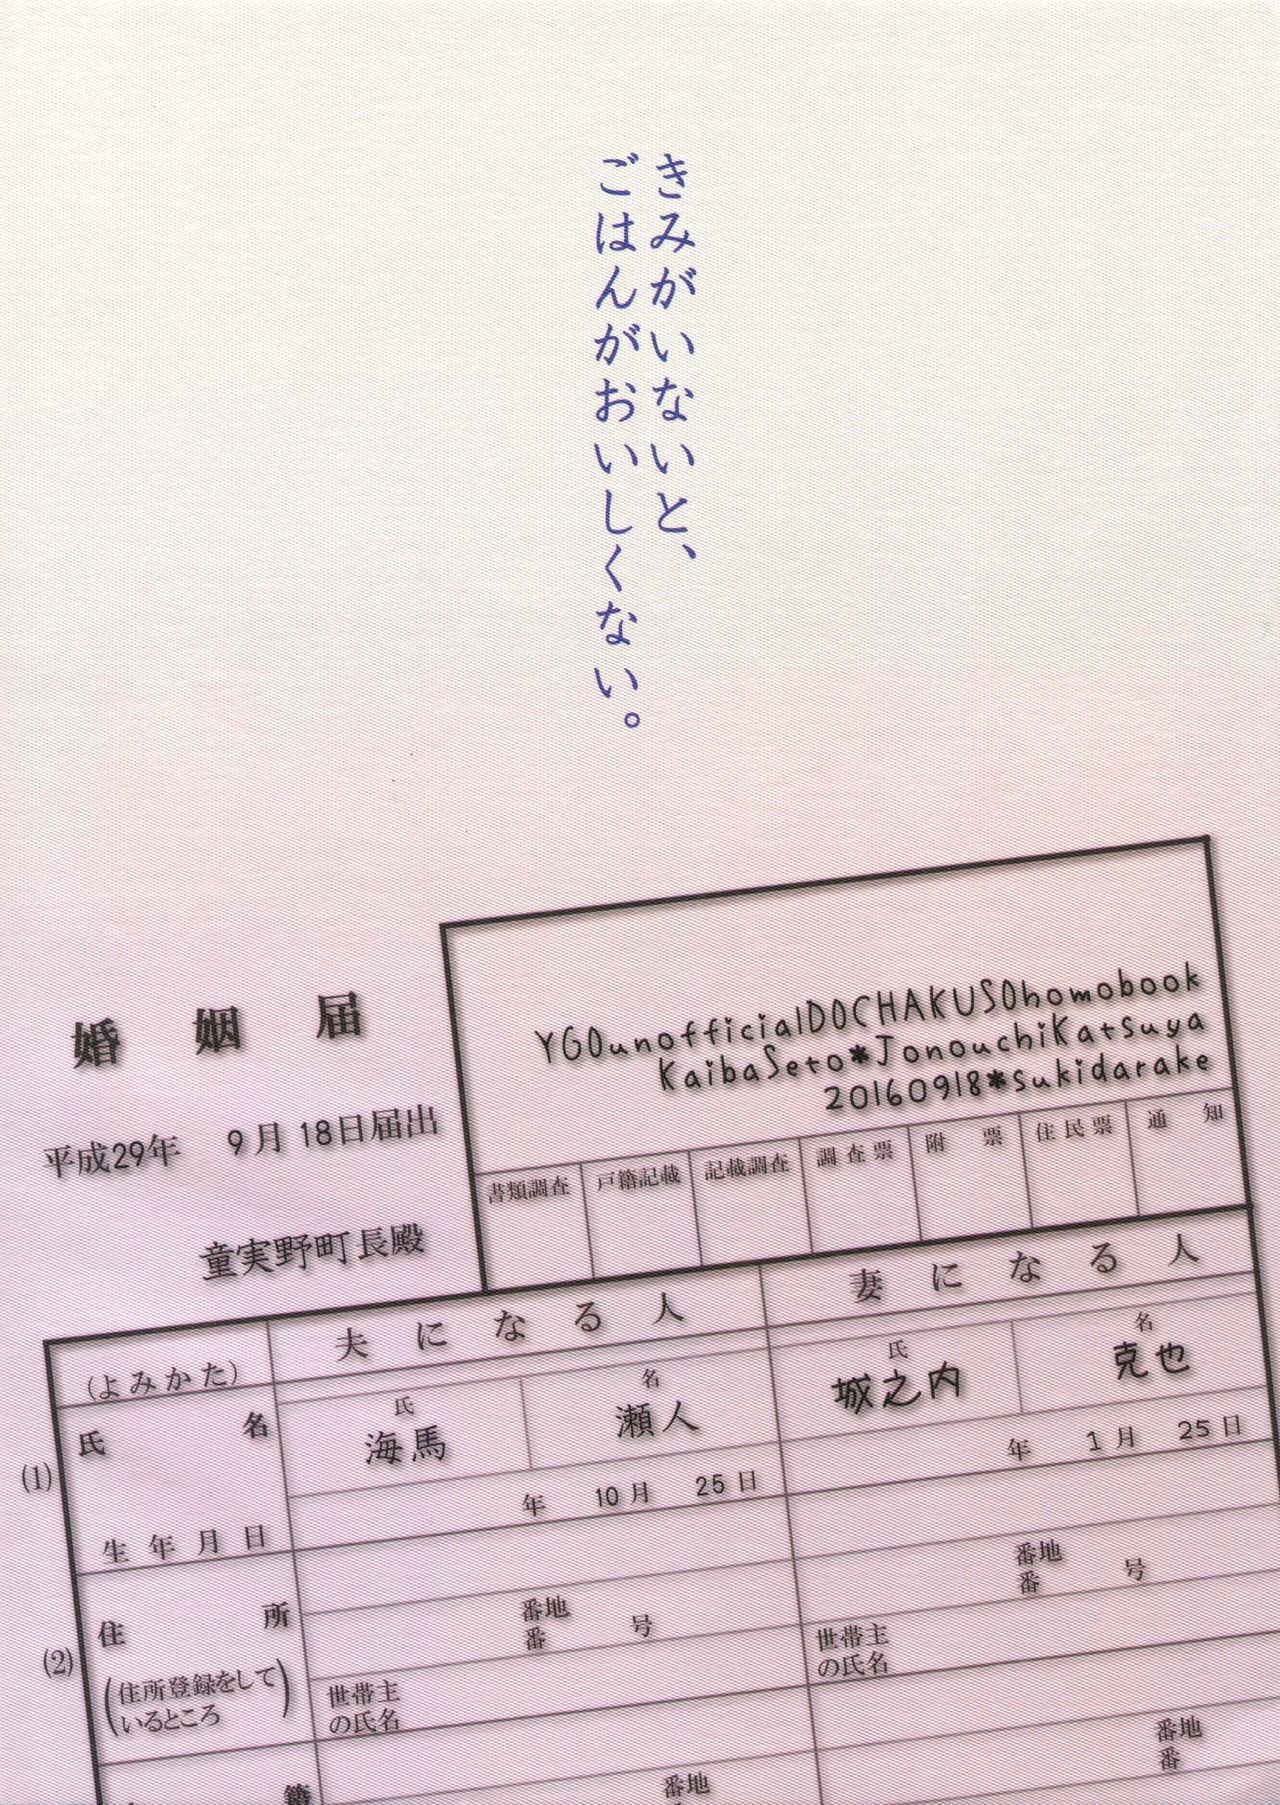 きみがいないと、
ごはんがおいしくない。
YGOunofficialDOCHAKUSOhomobook
KaibaSeto*JonouchiKatsuya
20160918*sukidarake
婚姻届
平成29年 9月18日届出
童実野町長殿
書類調査 戸籍記載 記載調査 調査票 附票 住民票 通知
夫になる人 妻になる人
(よみかた)
氏名
氏 名 氏 名
海馬 瀬人 城之内 克也
(1)
生年月日
年 10月 25日 年 1月 25日
(2)
住所
(住所登録をして
いるところ)
番地
番 号
番地
番 号
世帯主
の氏名
世帯主
の氏名
籍
番地
番
番地
番